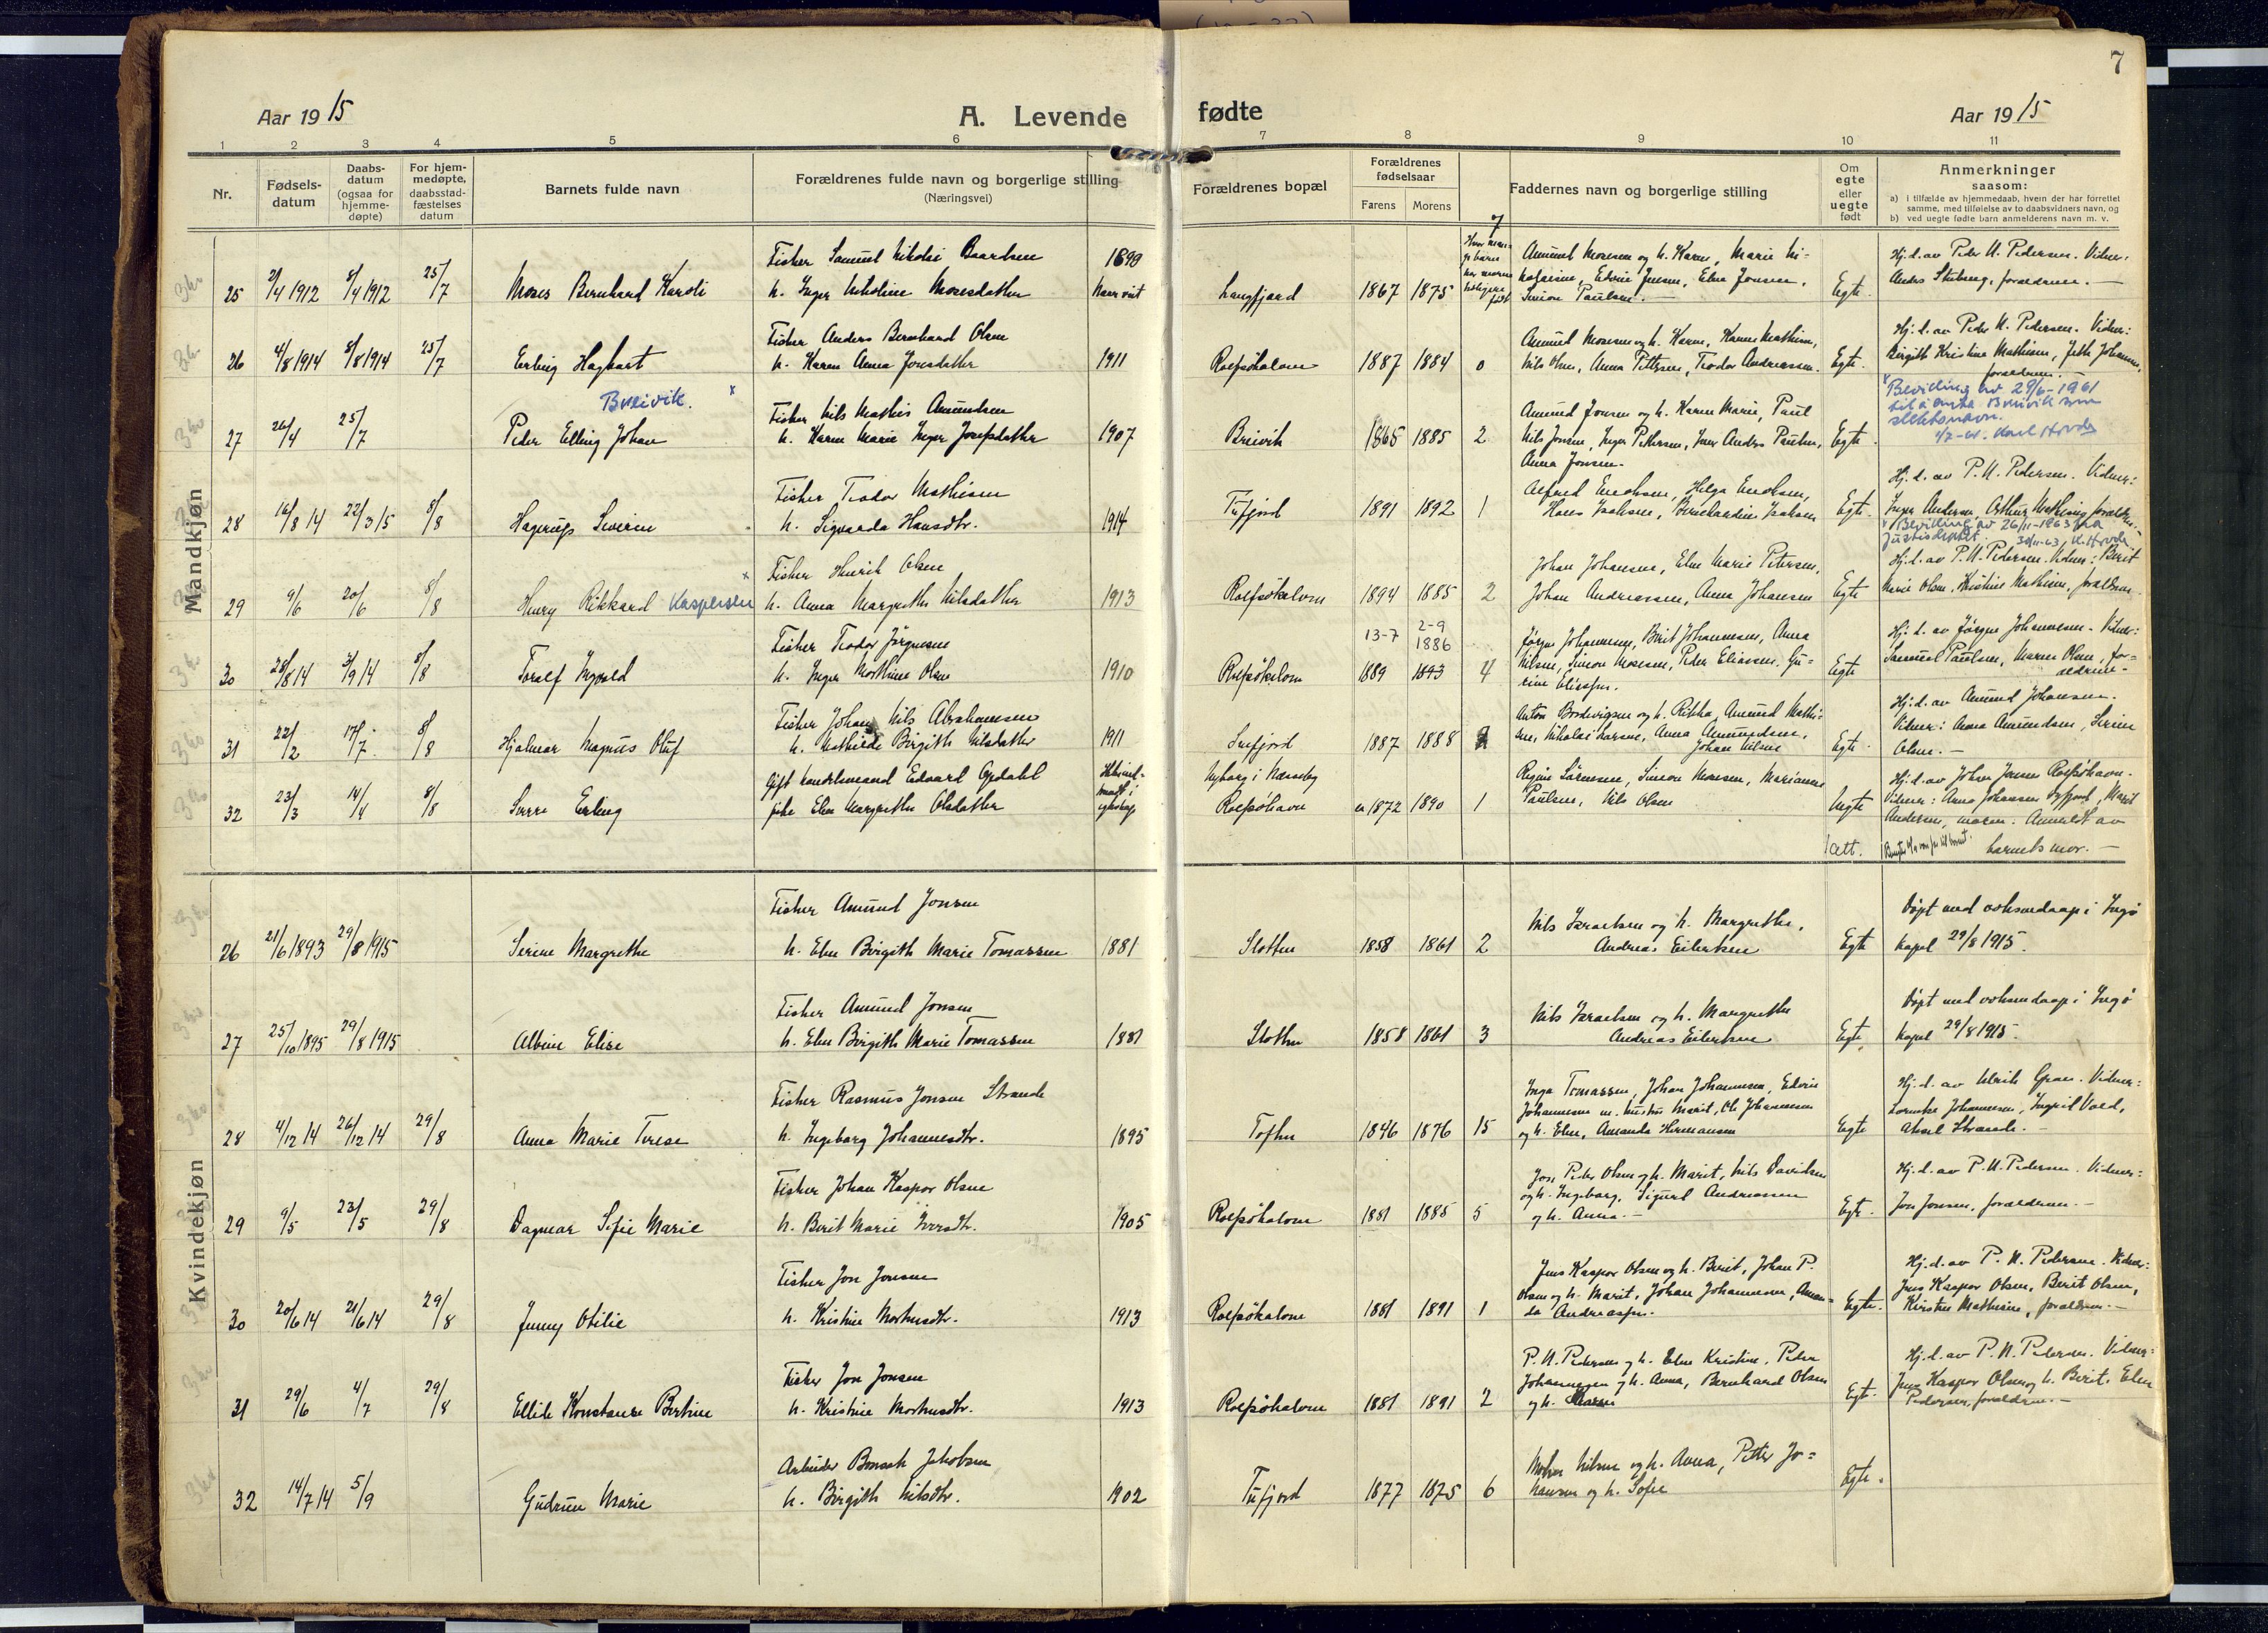 7
Aar 1915
A. Levende
fødte
Aar 1915
1 2 3 4 5 6 7 8 9 10 11
Nr.
Fødsels-
datum
Daabs-
datum
(ogsaa for
hjemme-
døpte)
For hjem-
medøpte,
daabsstad-
fæstelses
datum
Barnets fulde navn
Forældrenes fulde navn og borgerlige stilling
(Næringsvei)
Forældrenes bopæl
Forældrenes
fødselsaar
Farens Morens
Faddernes navn og borgerlige stilling
Om
egte
eller
uegte
født
Anmerkninger
saasom:
a) i tilfælde av hjemmedaab, hvem der har forrettet
samme, med tilføielse av to daabsvidners navn, og
b) ved uegte fødte barn anmelderens navn m. v.
Mandkjøn
Fisker Samuel Nikolai Baardsen
25 2/4 1912 8/4 1912 25/7 Moses Bernhard Karoli h. Inger Nikoline Mosesdatter
Langfjord 1867 1875 Egte
Amund Mosesen og h. Karen, Marie Ni-
Simon Paulsen.
Hj. d. av Peder N. Pedersen. Vidner:
Fisker Anders Bernhard Olsen
26 4/8 1914 8/8 1914 25/7 Erling Hagbart h. Karen Anna Jonsdatter 1911
Rolfsøhavn 1887 1884 0 Egte.
Nils Olsen, Anna Pettersen, Teodor Andreassen.
Hj. d. av Peder N. Pedersen. Vidner:
Birgith Kristine Mathisen,
forældrene.
Breivik. x
Fisker Nils Mathis Amundsen
27 26/4 25/7 Peder Elling Johan h. Karen Marie Inger Josefsdatter 1907
Breivik 1865 1885 2 Egte.
Amund Jonsen og h. Karen Marie, Paul
Nils Jonsen, Inger Pettersen, Iver Anders Paulsen,
Anna Jonsen.
x Bevilling av 29/6-1961
til å anta Breivik som
slektsnavn.
4/7-61. Karl Hovde
Fisker Teodor Mathisen
28 16/8 14 22/3 15 8/8 Hagerup Severin h. Sigvarda Hansdtr. 1914
Tufjord 1891 1892 1 Egte.
Alfred Enoksen, Helga Enoksen,
Hans Isaksen, Bernhardine Isaksen
Hj. d. av P. N. Pedersen. Vidner:
Inger Andersen, Arthur Mathisen, forældre.
x Bevilling av 26/11-1963 fra
Justisdeptet. 30/11-63 K. Hovde
Fisker Henrik Olsen
29 9/6 20/6 8/8 Henry Rikkard Kaspersen x h. Anna Margrethe Nilsdatter 1913
Rolfsøhavn 1894 1885 2 Egte
Johan Johansen, Elen Marie Petersen,
Johan Andreassen, Anna Johansen
Hj. d. av P. N. Pedersen. Vidner: Berit
Marie Olsen, Kristine Mathisen, forældrene.
13-7 2-9
1886
Fisker Teodor Jørgensen
30 28/8 14 3/9 14 8/8 Toralf Ingvald h. Inger Marthine Olsen 1910
Rolfsøhavn 1889 1893 4 Egte
Jørgen Johannesen, Berit Johannesen, Anna
Nilsen, Simon Mosesen, Peder Eliassen, Gu-
Hj. d. av Jørgen Johannesen. Vidner:
Samuel Paulsen, Maren Olsen, for-
ældrene.
Fisker Johan Nils Abrahamsen
31 22/2 17/7 8/8 Hjalmar Magnus Oluf h. Mathilde Birgith Nilsdatter 1911
Snefjord 1887 1888 Egte.
sen, Nikolai Larsen, Anna Amundsen,
Johan Nilsen
Hj. d. av Amund Johansen.
Vidner: Anna Amundsen, Serine
Olsen.
Gift handelsmand Edvard Opdahl
32 23/3 14/4 8/8 Sverre Erling pike Elen Margrethe Olsdatter
Nyborg i Nesseby
Rolfsøhavn ca 1872 1890 1 Uegte
Regine Sørensen, Simon Monsen, Marianne
Paulsen, Nils Olsen
Hj. d. av Johan Jensen Rolfsøhavn.
Andersen, moren. Anmeldt av
barnets mor.
Kvindekjøn
Fisker Amund Jonsen
26 21/6 1893 29/8 1915 Serine Margrethe h. Elen Birgith Marie Tomassen 1881
Slotten 1858 1861 2 Egte
Nils Israelsen og h. Margrethe,
Andreas Eilertsen
Døpt med voksendaap i Ingø
kapel 29/8 1915.
Fisker Amund Jonsen
27 25/10 1895 29/8 1915 Albine Elise h. Elen Birgith Marie Tomassen 1881
Slotten 1858 1861 3 Egte.
Nils Israelsen og h. Margrethe
Andreas Eilertsen
Døpt med voksendaap i Ingø
kapel 29/8 1915.
Fisker Rasmus Jonsen Strande
28 4/12 14 26/12 14 29/8 Anna Marie Terese h. Ingeborg Johannesdtr. 1895
Toften 1846 1876 15 Egte
Inga Tomassen, Johan Johannesen, Edvin
Johannesen m. hustru Marit, Ole Johannesen
og h. Elen, Amanda Hermansen
Hj. d. av Ulrik Gran. Vidner:
Johannesen, Ingril Vold,
Aksel Strande.
Fisker Johan Kaspar Olsen
29 9/5 23/5 29/8 Dagmar Sofie Marie h. Berit Marie Iversdtr. 1905
Rolfsøhavn 1881 1885 5 Egte.
Jon Peder Olsen og h. Marit, Nils Davidsen
og h. Ingeborg, Sigurd Andreassen
og h. Anna.
Hj. d. av P. N. Pedersen. Vidner:
Jon Jonsen, forældrene.
Fisker Jon Jonsen
30 20/6 14 21/6 14 29/8 Jenny Otilie h. Kristine Mortensdtr. 1913
Rolfsøhavn 1881 1891 1 Egte.
Jens Kaspar Olsen og h. Berit, Johan P.
Olsen og h. Marit, Johan Johannesen, Aman-
da Andreassen.
Hj. d. av P. N. Pedersen. Vidner:
Jens Kaspar Olsen, Berit Olsen,
Kirsten Mathisen, forældrene.
Fisker Jon Jonsen
31 29/6 4/7 29/8 Ellide Konstanse Bertine h. Kristine Mortensdtr. 1913
Rolfsøhavn 1881 1891 2 Egte.
P. N. Pedersen og h. Elen Kristine, Peder
Johannesen og h. Anna, Bernhard Olsen
og h. Maren
Hj. d. av P. N. Pedersen. Vidner:
Jens Kaspar Olsen og h. Berit, Elen
Pedersen, forældrene.
Arbeider Jakobsen
32 14/7 14 5/9 Gudrun Marie h. Birgith Nilsdtr. 1902
Tufjord 1877 1875 6 Egte.
Nilsen og h. Anna, Petter Jo-
hansen og h. Sofie